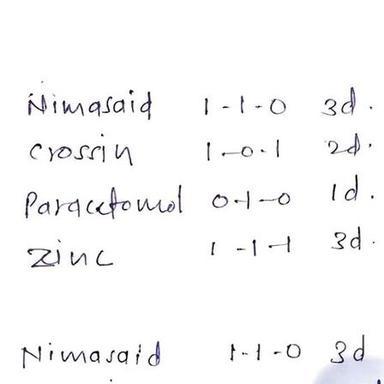 Nimasaid 1-1-0 3d.
Crossin 1-0-1 2d.
Paracetomol 0-1-0 1d.
Zinc 1-1-1 3d.
Nimasaid 1-1-0 3d